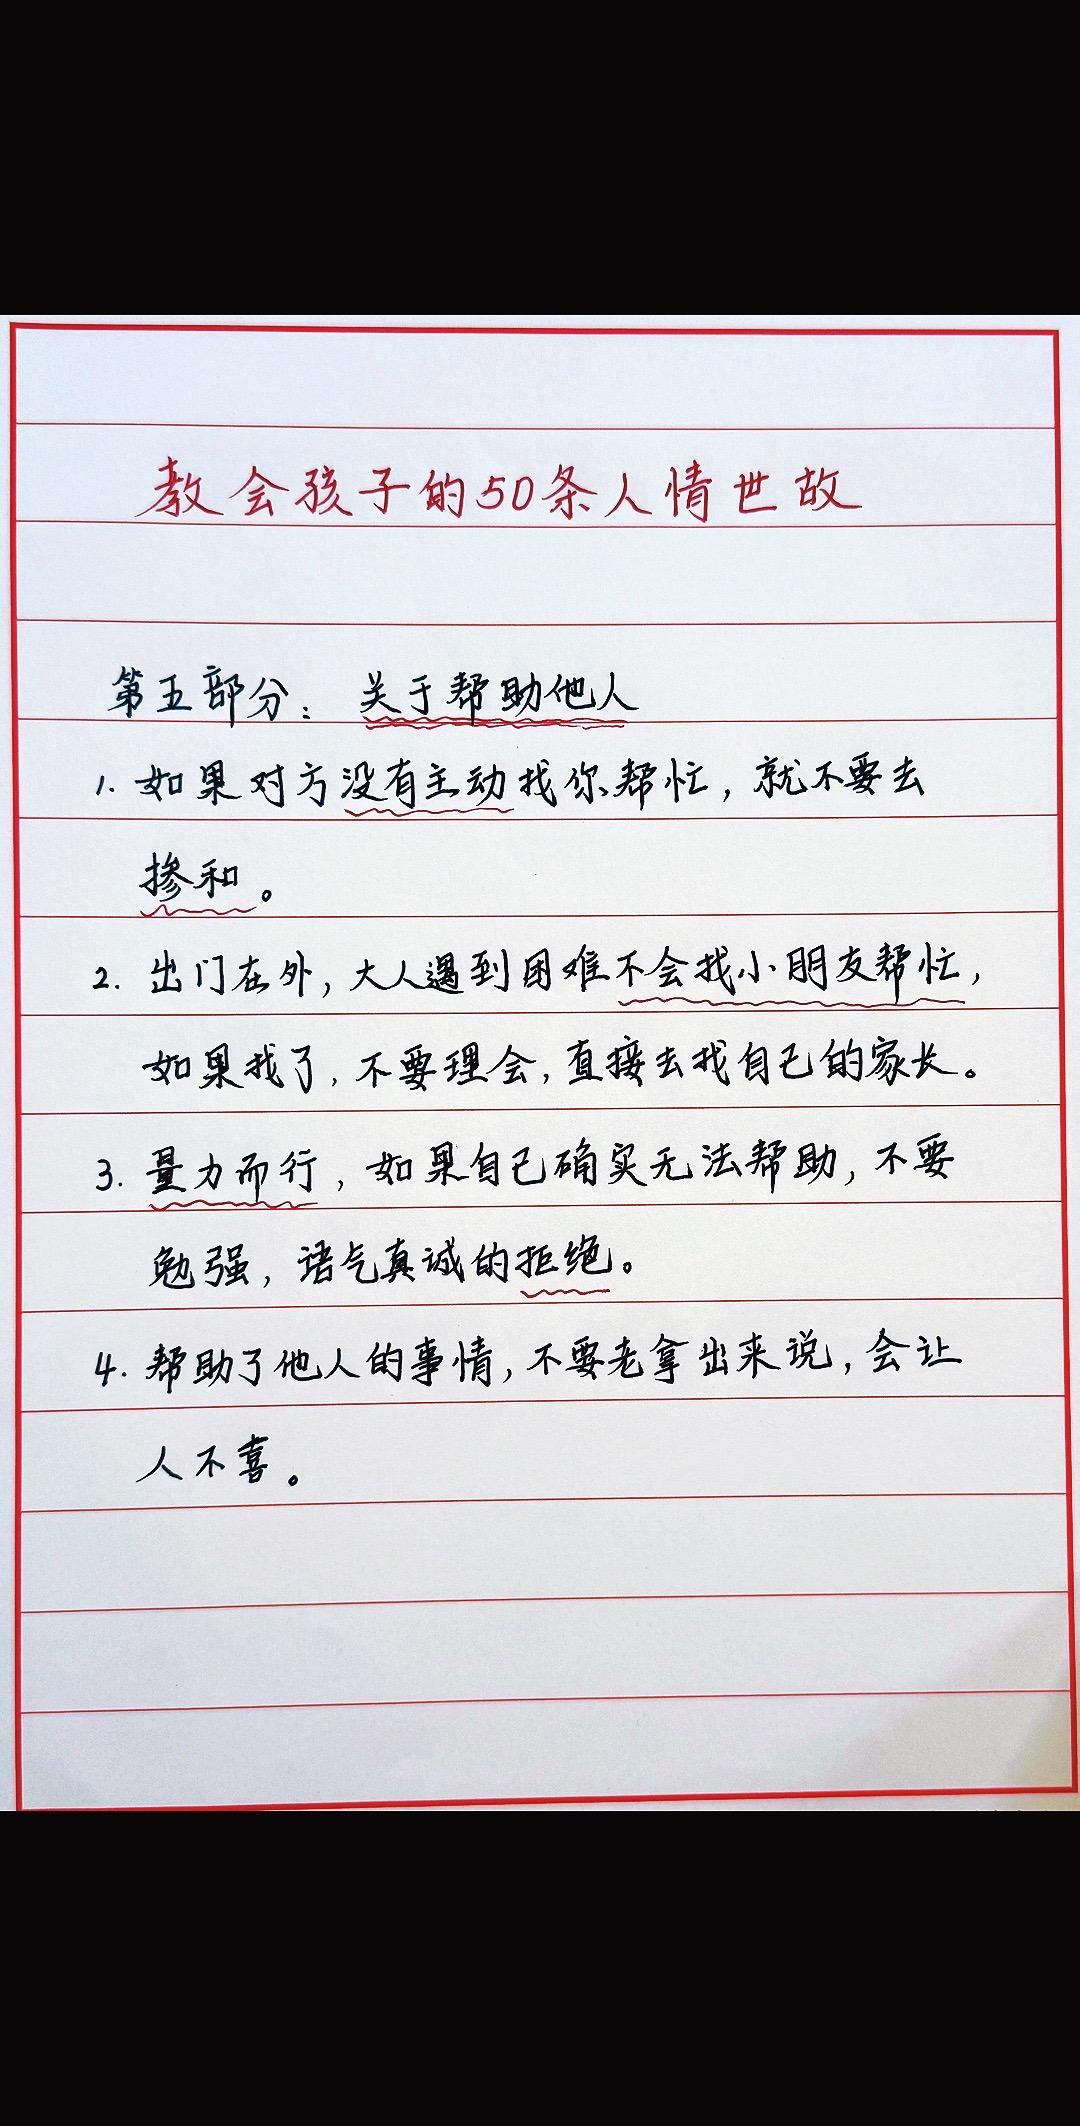 教会孩子的50条人情世故
第五部分：关于帮助他人
1. 如果对方没有主动找你帮忙，就不要去
掺和。
2. 出门在外，大人遇到困难不会找小朋友帮忙，
如果找了，不要理会，直接去找自己的家长。
3. 量力而行，如果自己确实无法帮助，不要
勉强，语气真诚的拒绝。
4. 帮助了他人的事情，不要老拿出来说，会让
人不喜。